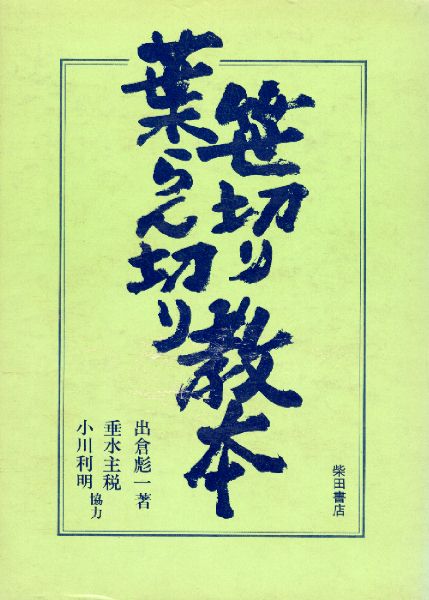 笹切り
葉らん切り
教本
出倉彪一著
垂水主税
小川利明 協力
柴田書店